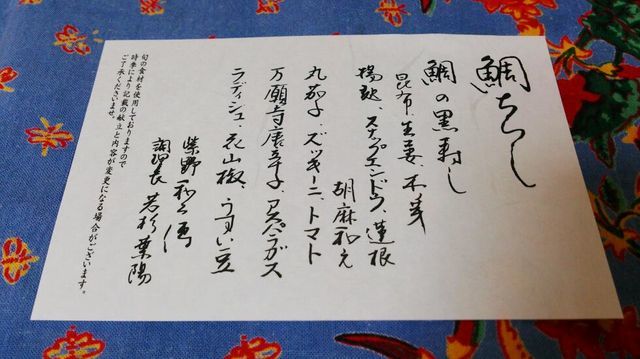 鯛ちらし
鯛の黒寿し
昆布、生姜、木の芽
揚麩、スナップエンドウ、蓮根
胡麻和え
丸茄子、ズッキーニ、トマト
万願寺唐辛子、アスパラガス
ラディッシュ、花山椒、うすい豆
紫野和久傳
調理長 若杉葉陽
旬の食材を使用しておりますので
時季により記載の献立と内容が変更になる場合がございます。
ご了承くださいませ。